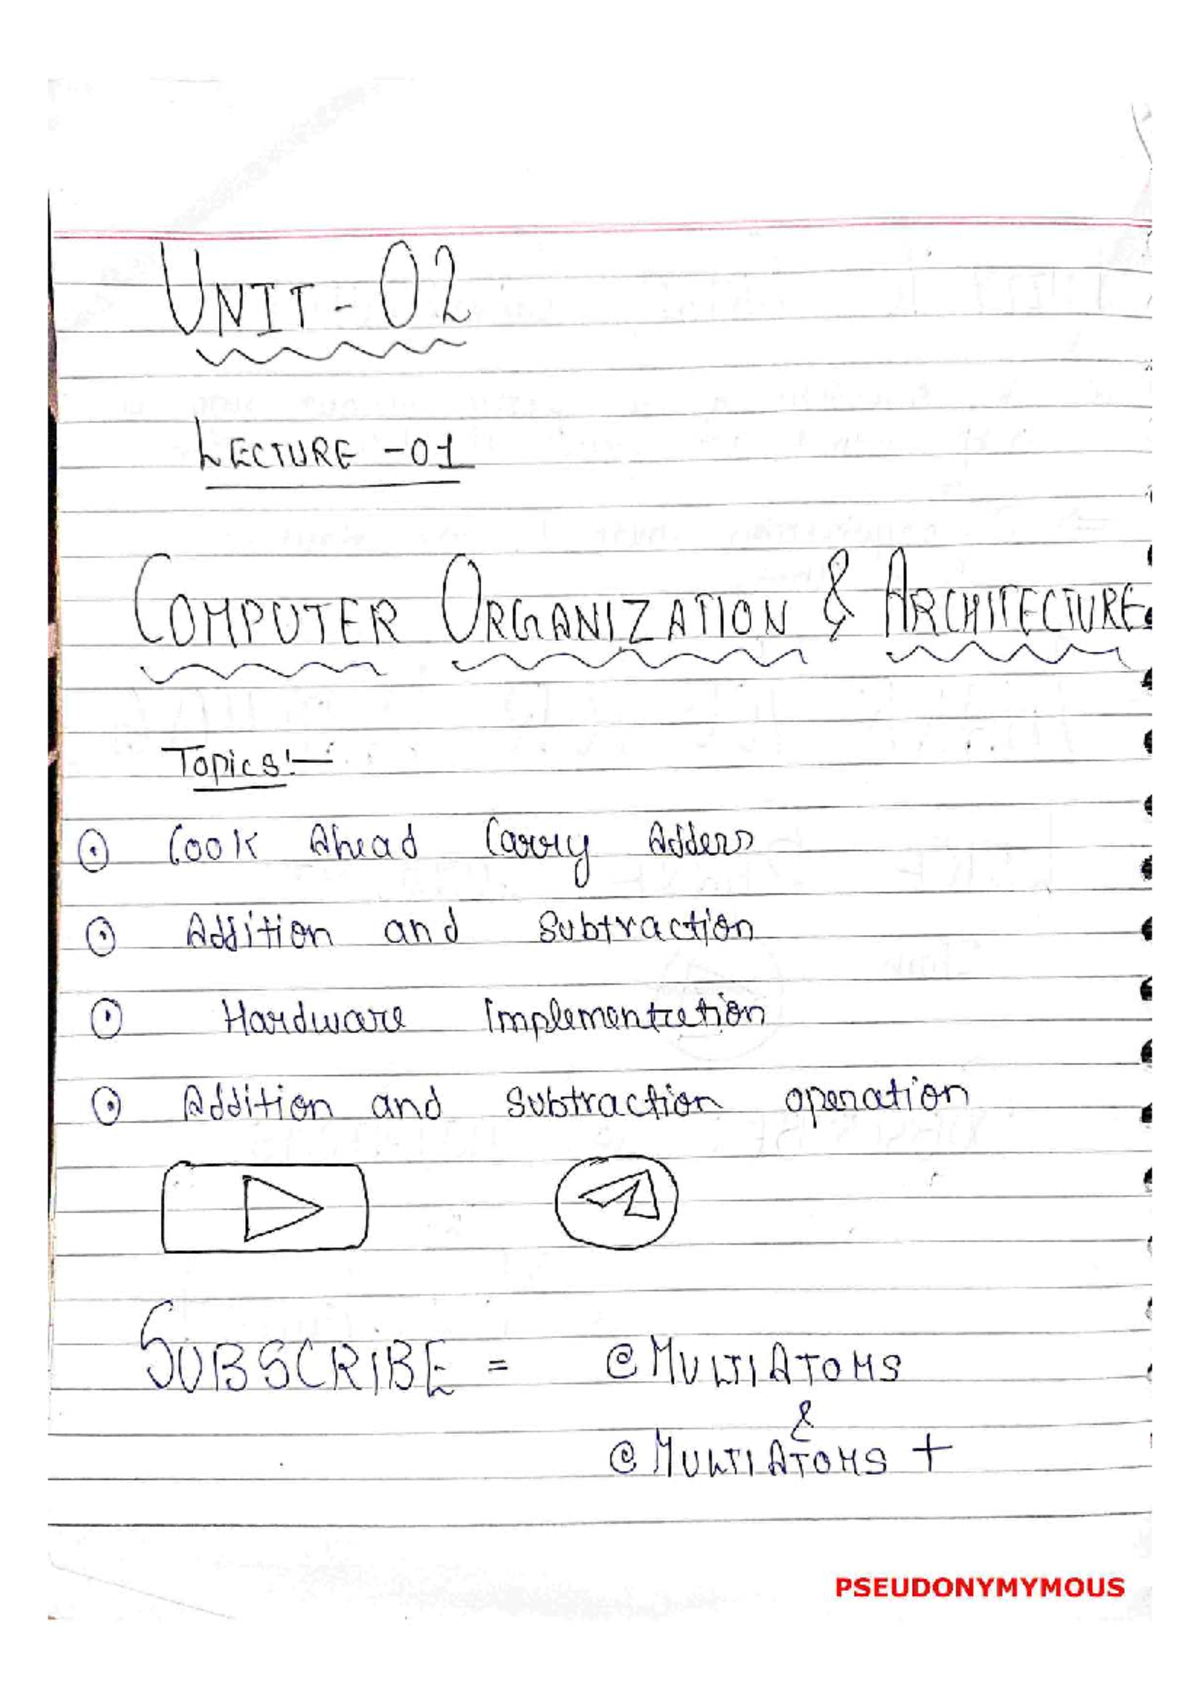 UNIT - 02
LECTURE - 01
COMPUTER ORGANIZATION & ARCHITECTURE
Topics:-
Look Ahead Carry Adders
Addition and Subtraction
Hardware Implementation
Addition and Subtraction operation
SUBSCRIBE = @MULTIATOMS
&
@MULTIATOMS +
PSEUDONYMYMOUS